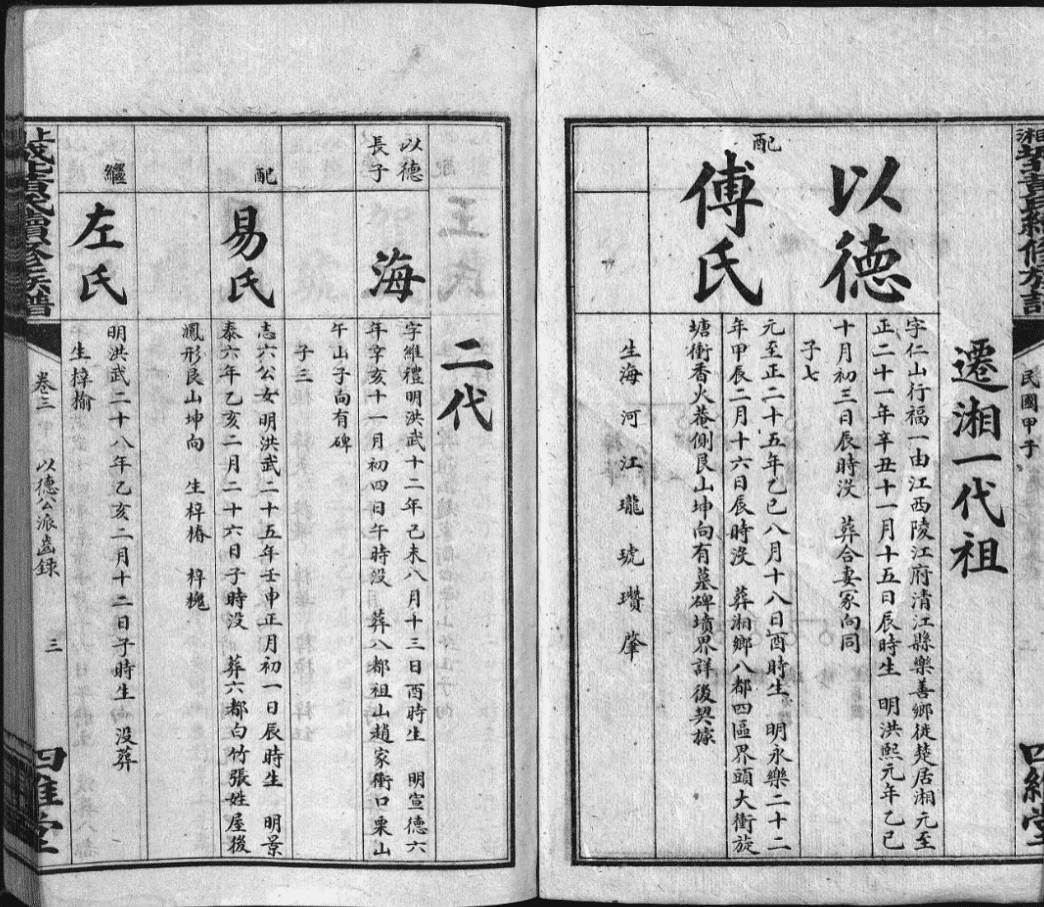 民國甲子
遷湘一代祖
以德
字仁山行福一由江西陵江府清江縣樂善鄉徙楚居湘元至
正二十一年辛丑十一月十五日辰時生 明洪熙元年乙巳
十月初三日辰時沒 葬合妻冢向同
子七
配
傅氏
元至正二十五年乙巳八月十八日酉時生 明永樂二十二
年甲辰二月十六日辰時沒 葬湘鄉八都四區界頭大衝旋
塘衝香火菴側艮山坤向有墓碑墳界詳後契據
生海 河 江 瓏 琥 瓚 肇
二代
以德
長子
海
字維禮明洪武十二年己未八月十三日酉時生 明宣德六
年辛亥十一月初四日午時沒 葬八都祖山趙家衝口栗山
午山子向有碑
子三
配
易氏
志六公女明洪武二十五年壬申正月初一日辰時生 明景
泰六年乙亥二月二十六日子時沒 葬六都白竹張姓屋後
鳳形艮山坤向 生梓椿 梓槐
繼
左氏
明洪武二十八年乙亥二月十二日子時生 沒葬
生梓榆
續修族譜
卷三 以德公派齒錄 三
四維堂